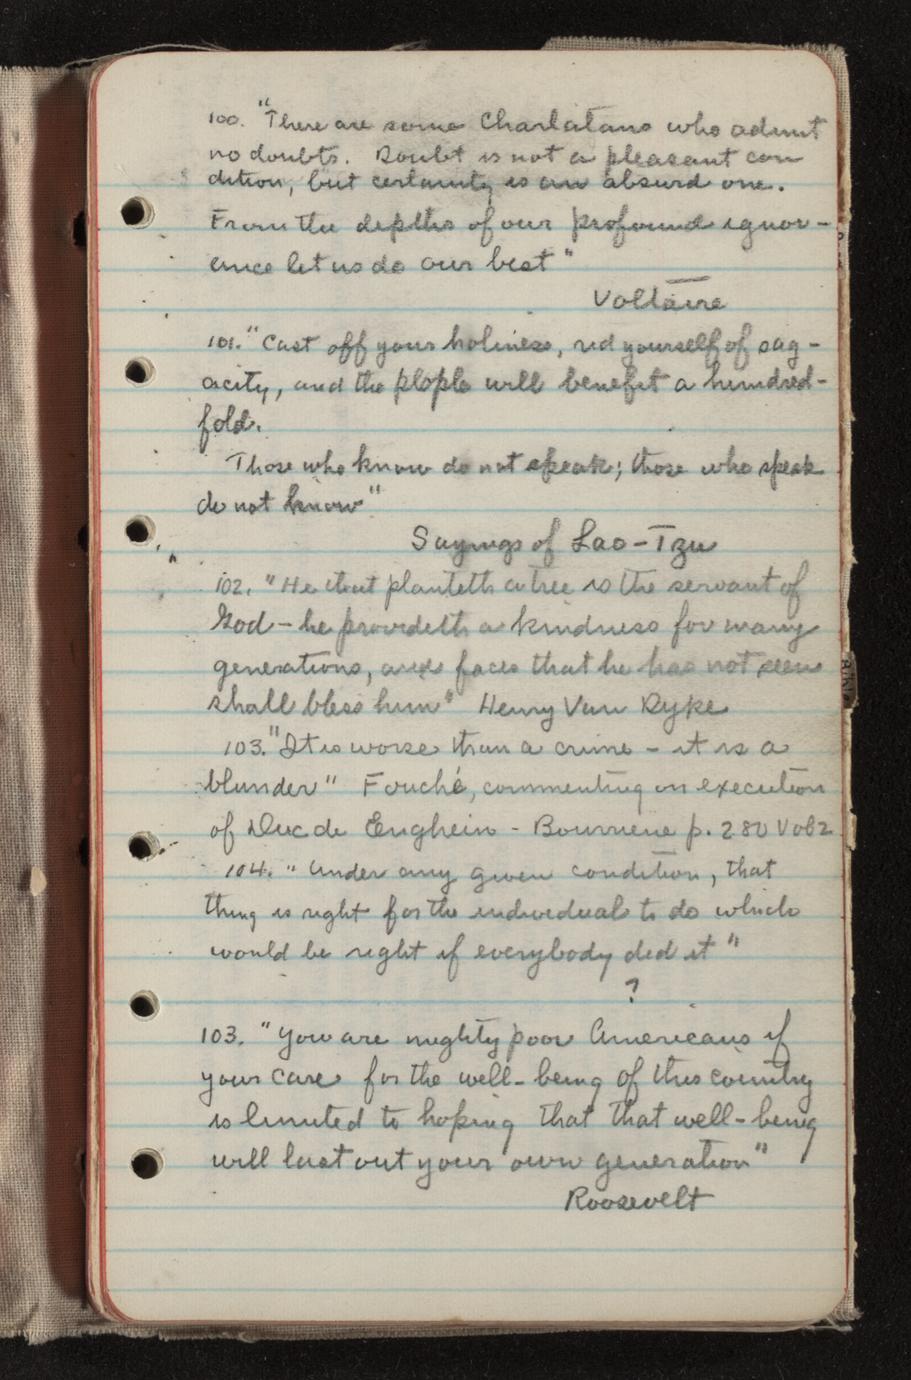 100. "There are some Charlatans who admit
no doubts. Doubt is not a pleasant con
dition, but certainty is an absurd one.
From the depths of our profound ignor-
ance let us do our best"
Voltaire
101. "Cast off your holiness, rid yourself of sag-
acity, and the people will benefit a hundred-
fold.
Those who know do not speak; those who speak
do not know"
Sayings of Lao-Tzu
102. "He that planteth a tree is the servant of
God - he provideth a kindness for many
generations, and faces that he has not seen
shall bless him" Henry Van Dyke
103. "It is worse than a crime - it is a
blunder" Fouché, commenting on execution
of Duc de Enghein - Bourriene p. 280 Vol 2
104. "Under any given condition, that
thing is right for the individual to do which
would be right if everybody did it"
?
103. "You are mighty poor Americans if
your care for the well-being of this country
is limited to hoping that that well-being
will last out your own generation"
Roosevelt